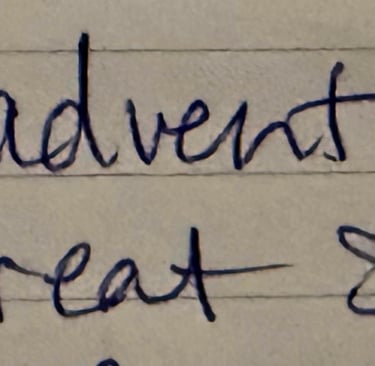 advent
reat